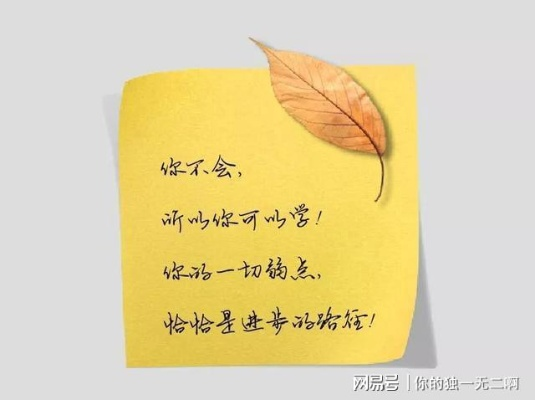 你不会，
所以你可以学！
你的一切弱点，
恰恰是进步的路径！
网易号 | 你的独一无二啊